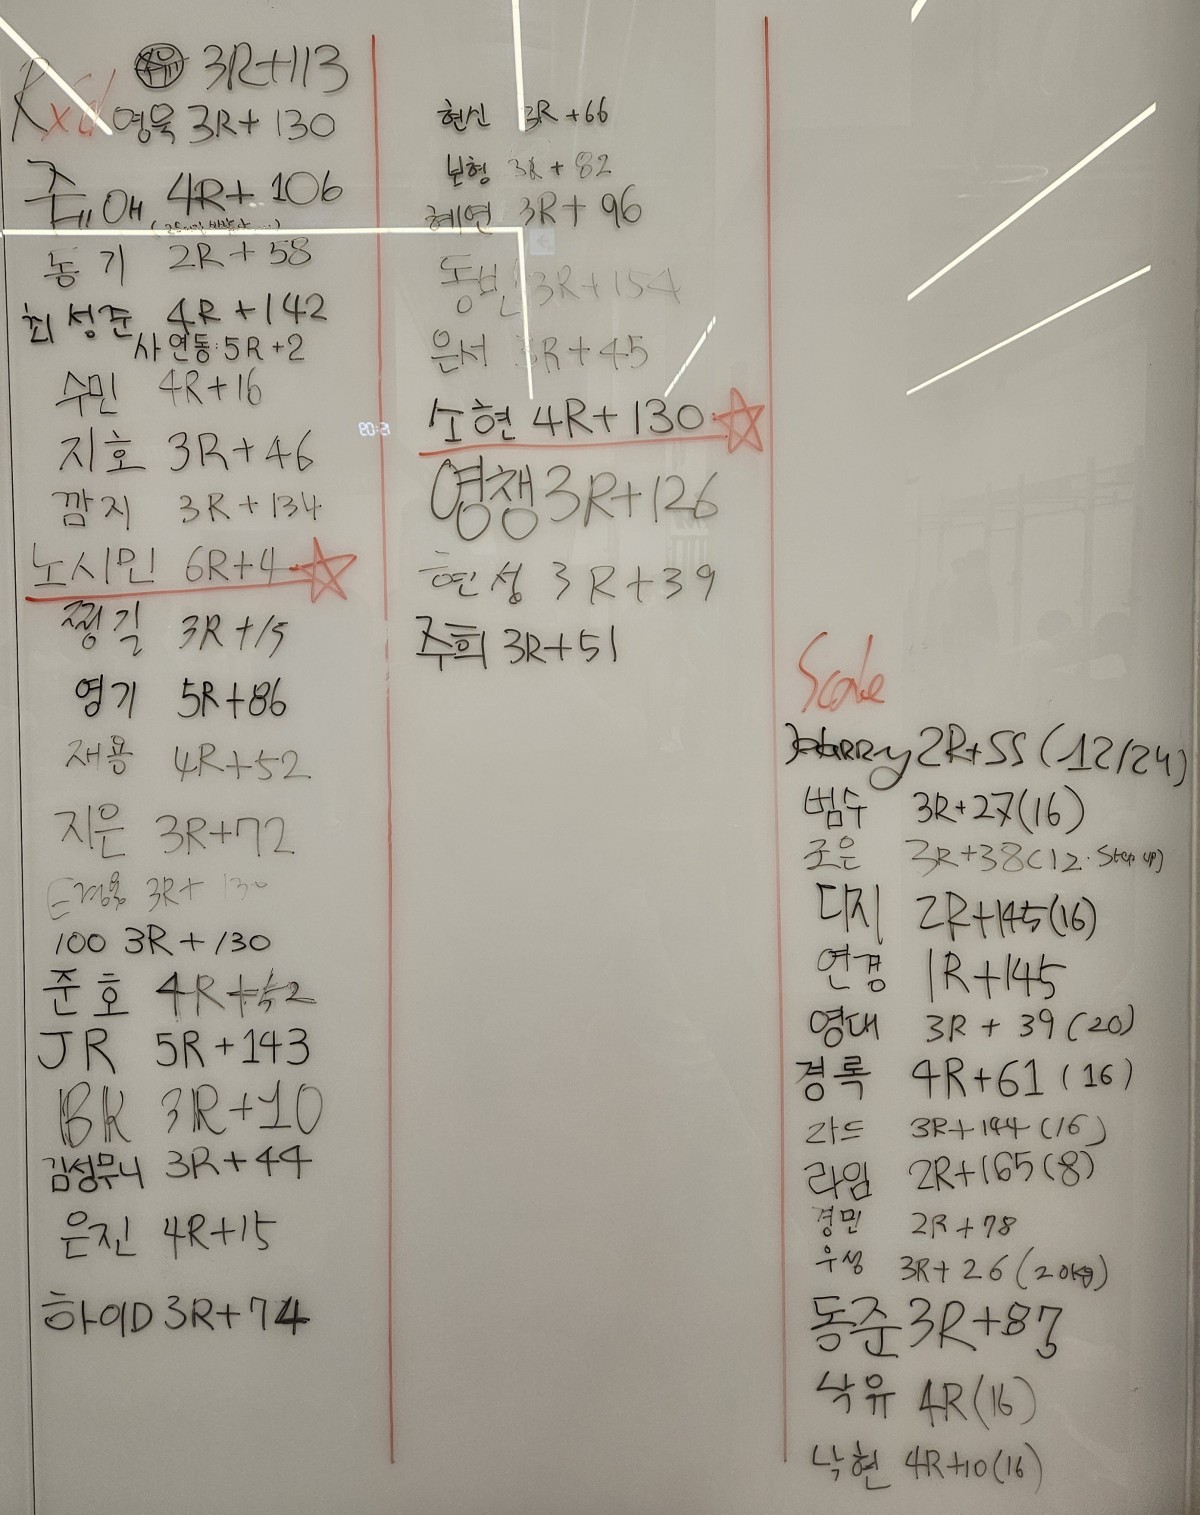 Rxd
3R+113
영욱 3R+130
쥬니애 4R+106
동기 2R+58
최성준 4R+142
사연동:5R+2
수민 4R+16
지호 3R+46
깜지 3R+134
노시민 6R+4
찡길 3R+15
영기 5R+86
재용 4R+52
지은 3R+72
3R+130
100 3R+130
준호 4R+52
JR 5R+143
BK 3R+10
김성무니 3R+44
은진 4R+15
하이D 3R+74
현신 3R+66
보형 3R+82
혜연 3R+96
동빈 3R+154
은서 3R+45
소현 4R+130
영챙 3R+126
현성 3R+39
주희 3R+51
Scale
Harry 2R+55 (12/24)
범수 3R+27(16)
조은 3R+38(12·Step up)
디지 2R+145(16)
연경 1R+145
영대 3R+39(20)
경록 4R+61(16)
라드 3R+144(16)
라임 2R+165(8)
경민 2R+78
우성 3R+26(20kg)
동준 3R+87
낙유 4R(16)
낙현 4R+10(16)